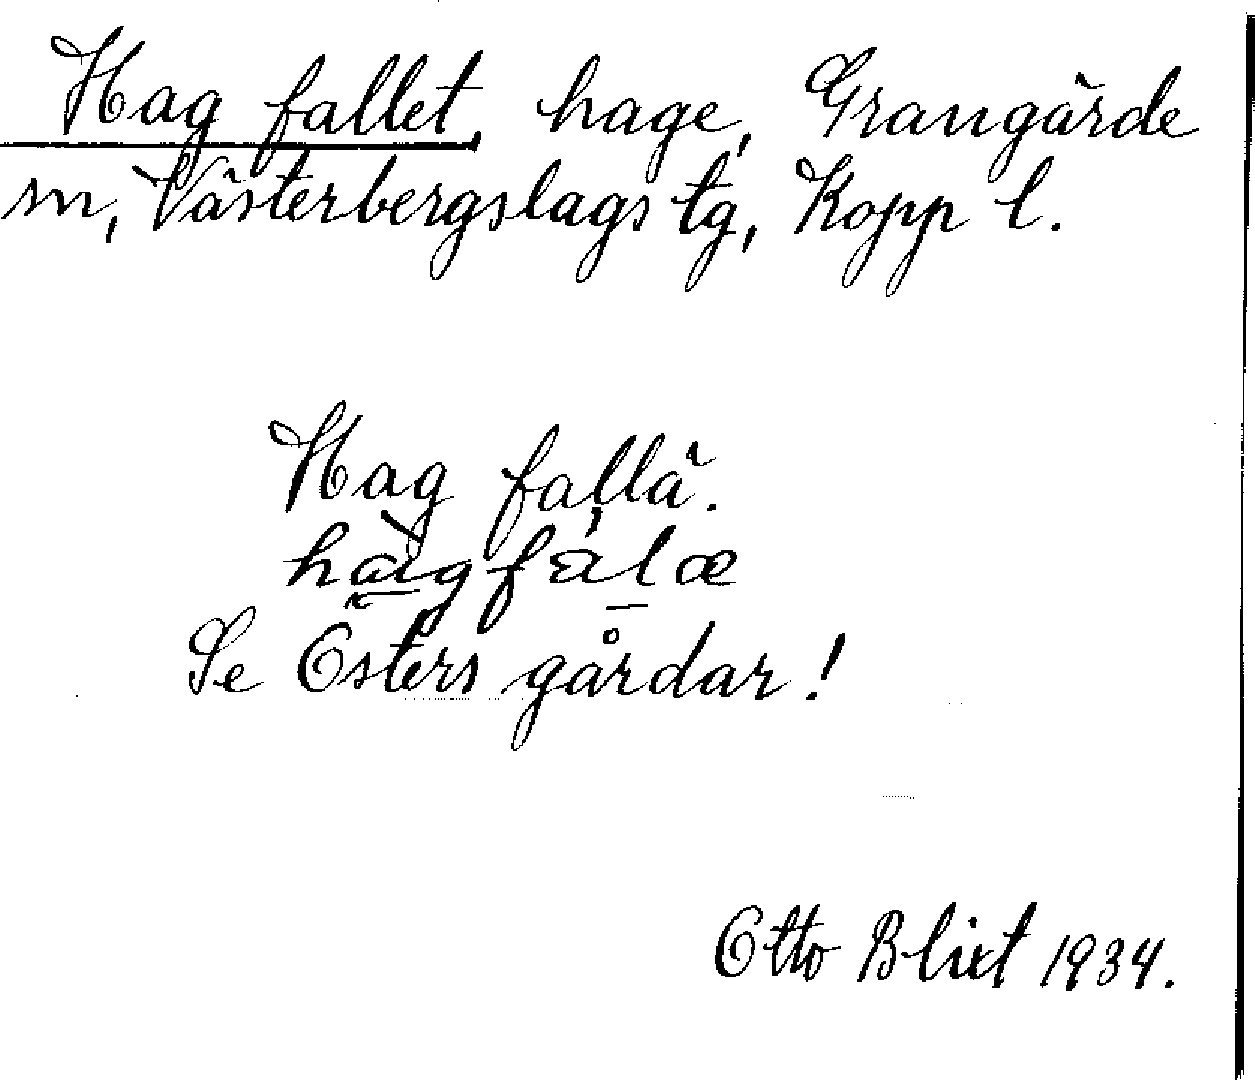 Hag fallet, hage, Grangärde
sn, Västerbergslags tg, Kopp l.
Hag fallä.
Se Osters gårdar!
Otto Blixt 1934.